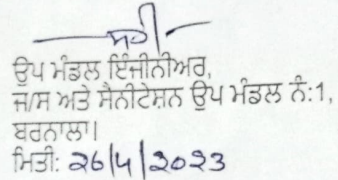 ਸਹੀ
ਉਪ ਮੰਡਲ ਇੰਜੀਨੀਅਰ,
ਜ/ਸ ਅਤੇ ਸੈਨੀਟੇਸ਼ਨ ਉਪ ਮੰਡਲ ਨੰ:1,
ਬਰਨਾਲਾ।
ਮਿਤੀ: 26/4/2023